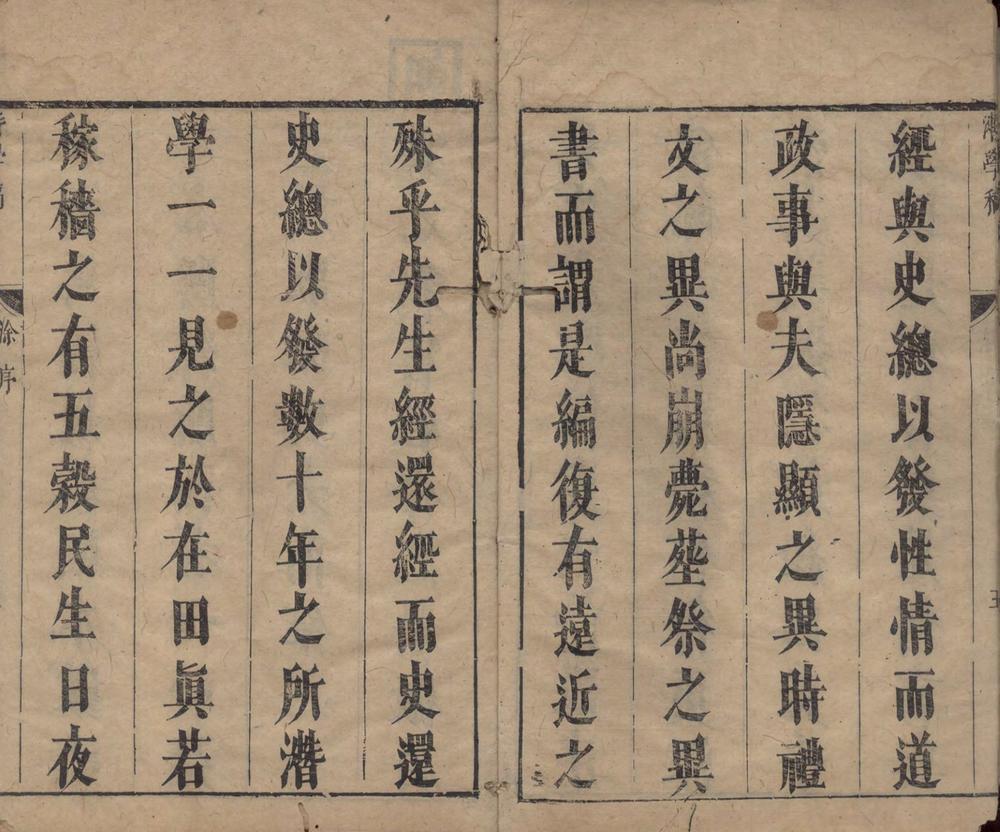 經與史總以發性情而道
政事與夫隱顯之異時禮
文之異尚崩薨塟祭之異
書而謂是編復有遠近之
殊乎先生經還經而史還
史總以發數十年之所潛
學一一見之於在田眞若
稼穡之有五糓民生日夜
徐序